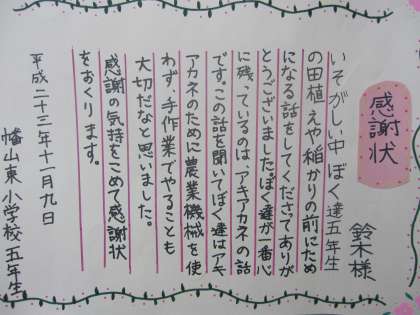 感謝状
鈴木様
いそがしい中ぼく達五年生
の田植えや稲かりの前にため
になる話をしてくださってありが
とうございました。ぼく達が一番心
に残っているのは、アキアカネの話
です。この話を聞いてぼく達はアキ
アカネのために農業機械を使
わず、手作業でやることも
大切だなと思いました。
感謝の気持をこめて感謝状
をおくります。
平成二十三年十一月九日
幡山東小学校五年生